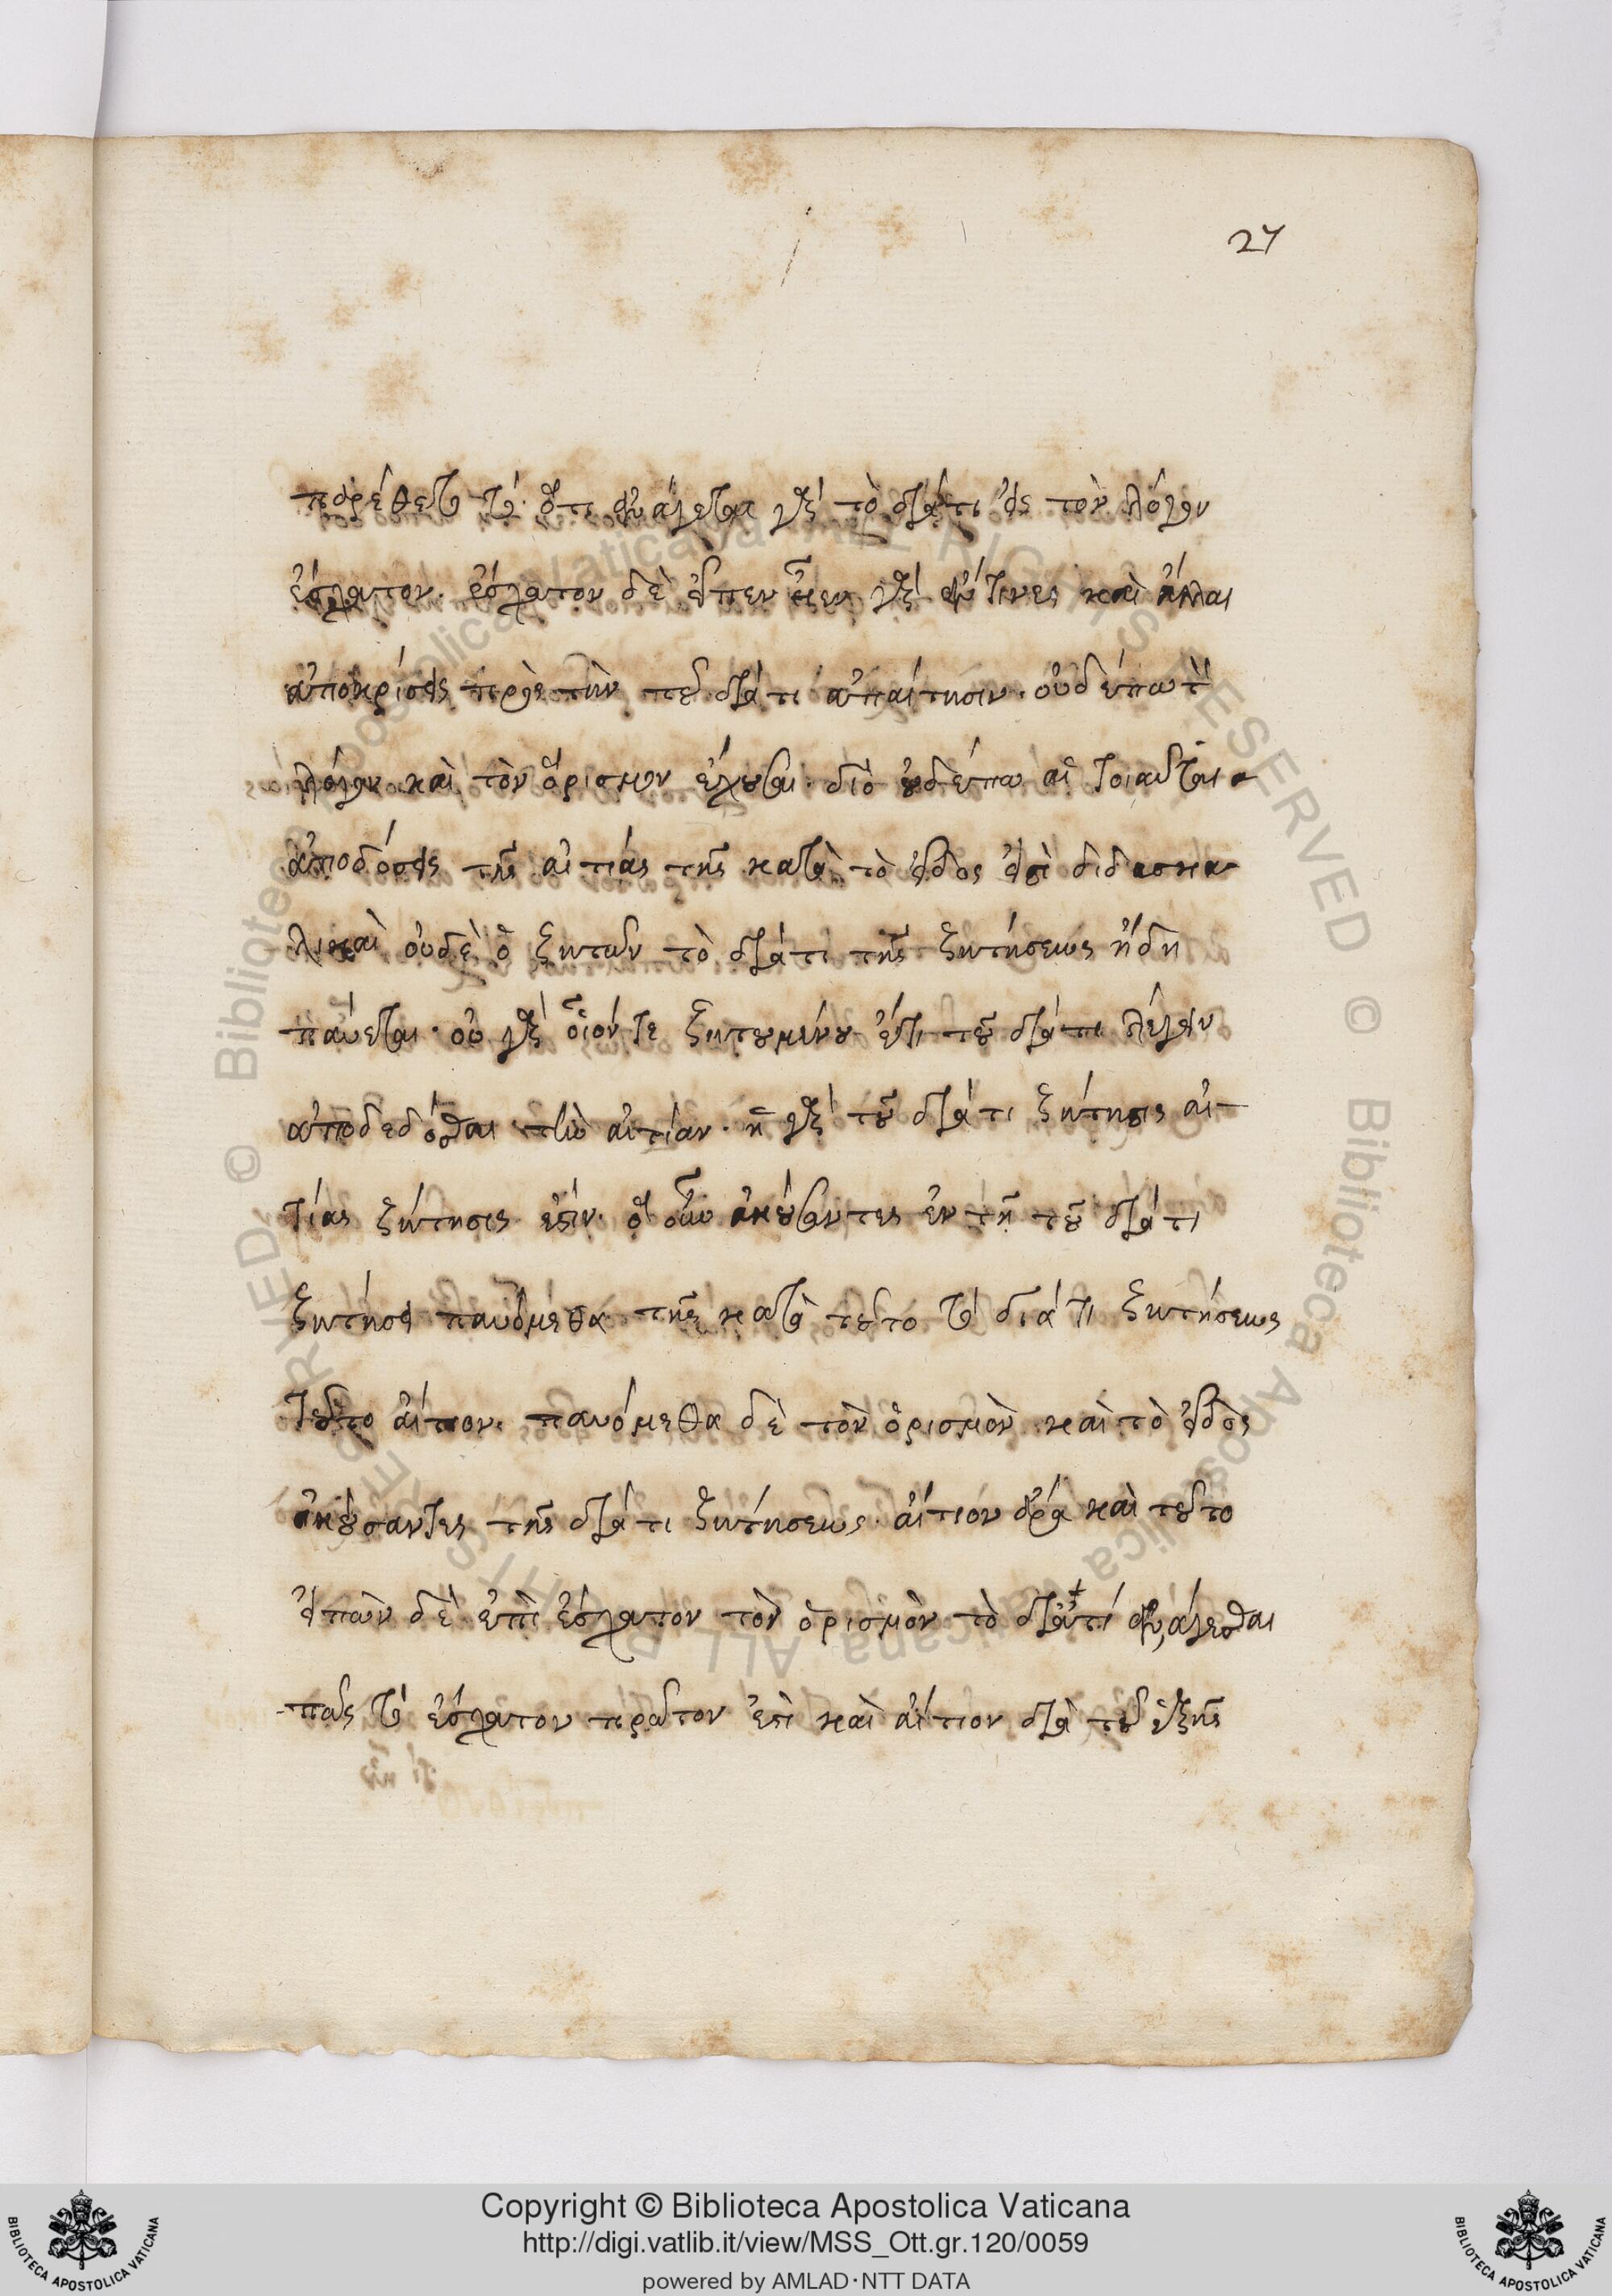 27
παρέθετο τὸ. ὅτι ἀνάγεται γὰρ τὸ διάτι εἰς τὸν λόγον
ἔσχατον. ἔσχατον δὲ εἶπεν γὰρ τινες καὶ ἄλλαι
ἀποκρίσεις πρὸς τὴν τοῦ διάτι ἀπαίτησιν. οὐδέπω τὸν
λόγον καὶ τὸν ὅρισμον ἔχουσαι. διὸ οὐδέπω αἱ τοιαῦται
ἀποδόσεις τῆς αἰτίας τῆς κατὰ τὸ εἶδος εἰσὶ διδασκα
λικαὶ οὐδὲ ὁ ζητῶν τὸ διάτι τῆς ζητήσεως ἤδη
παύεται. οὐ γὰρ οἷόν τε ζητουμένου ἔτι τοῦ διάτι λέγειν
ἀποδεδόσθαι τὴν αἰτίαν. ἡ γὰρ τοῦ διάτι ζήτησις αἰ-
τίας ζήτησις ἐστίν. ὃ οὖν ἀκούσαντες ἐν τῇ τοῦ διάτι
ζητήσει παυόμεθα τῆς κατὰ τοῦτο τὸ διάτι ζητήσεως
τοῦτο αἴτιον. παυόμεθα δὲ τὸν ὁρισμὸν καὶ τὸ εἶδος
ἀκούσαντες τῆς διάτι ζητήσεως. αἴτιον ἄρα καὶ τοῦτο
εἰπὼν δὲ ἐπὶ ἔσχατον τὸν ὁρισμὸν τὸ διατί ἀνάγεσθαι
πῶς τὸ ἔσχατον πρῶτον ἐστὶ καὶ αἴτιον διὰ τοῦ ἑξῆς
Copyright © Biblioteca Apostolica Vaticana
http://digi.vatlib.it/view/MSS_Ott.gr.120/0059
powered by AMLAD·NTT DATA